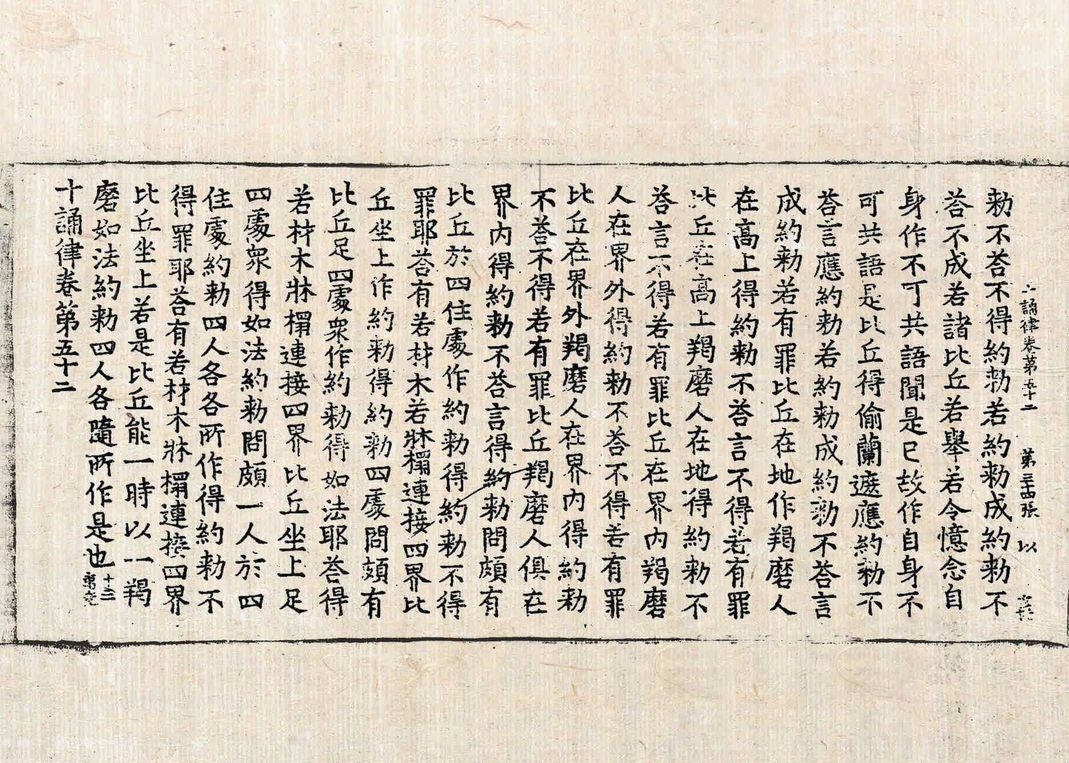 十誦律卷第五十二 第三十四張 以
勑不荅不得約勑若約勑成約勑不
荅不成若諸比丘若舉若令憶念自
身作不可共語聞是已故作自身不
可共語是比丘得偷蘭遮應約勑不
荅言應約勑若約勑成約勑不荅言
成約勑若有罪比丘在地作羯磨人
在高上得約勑不荅言不得若有罪
比丘在高上羯磨人在地得約勑不
荅言不得若有罪比丘在界內羯磨
人在界外得約勑不荅不得若有罪
比丘在界外羯磨人在界內得約勑
不荅不得若有罪比丘羯磨人俱在
界內得約勑不荅言得約勑問頗有
比丘於四住處作約勑得約勑不得
罪耶荅有若材木若牀榻連接四界比
丘坐上作約勑得約勑四處問頗有
比丘足四處衆作約勑得如法耶荅得
若材木牀榻連接四界比丘坐上足
四處衆得如法約勑問頗一人於四
住處約勑四人各各所作得約勑不
得罪耶荅有若材木牀榻連接四界
比丘坐上若是比丘能一時以一羯
磨如法約勑四人各隨所作是也
十誦律卷第五十二